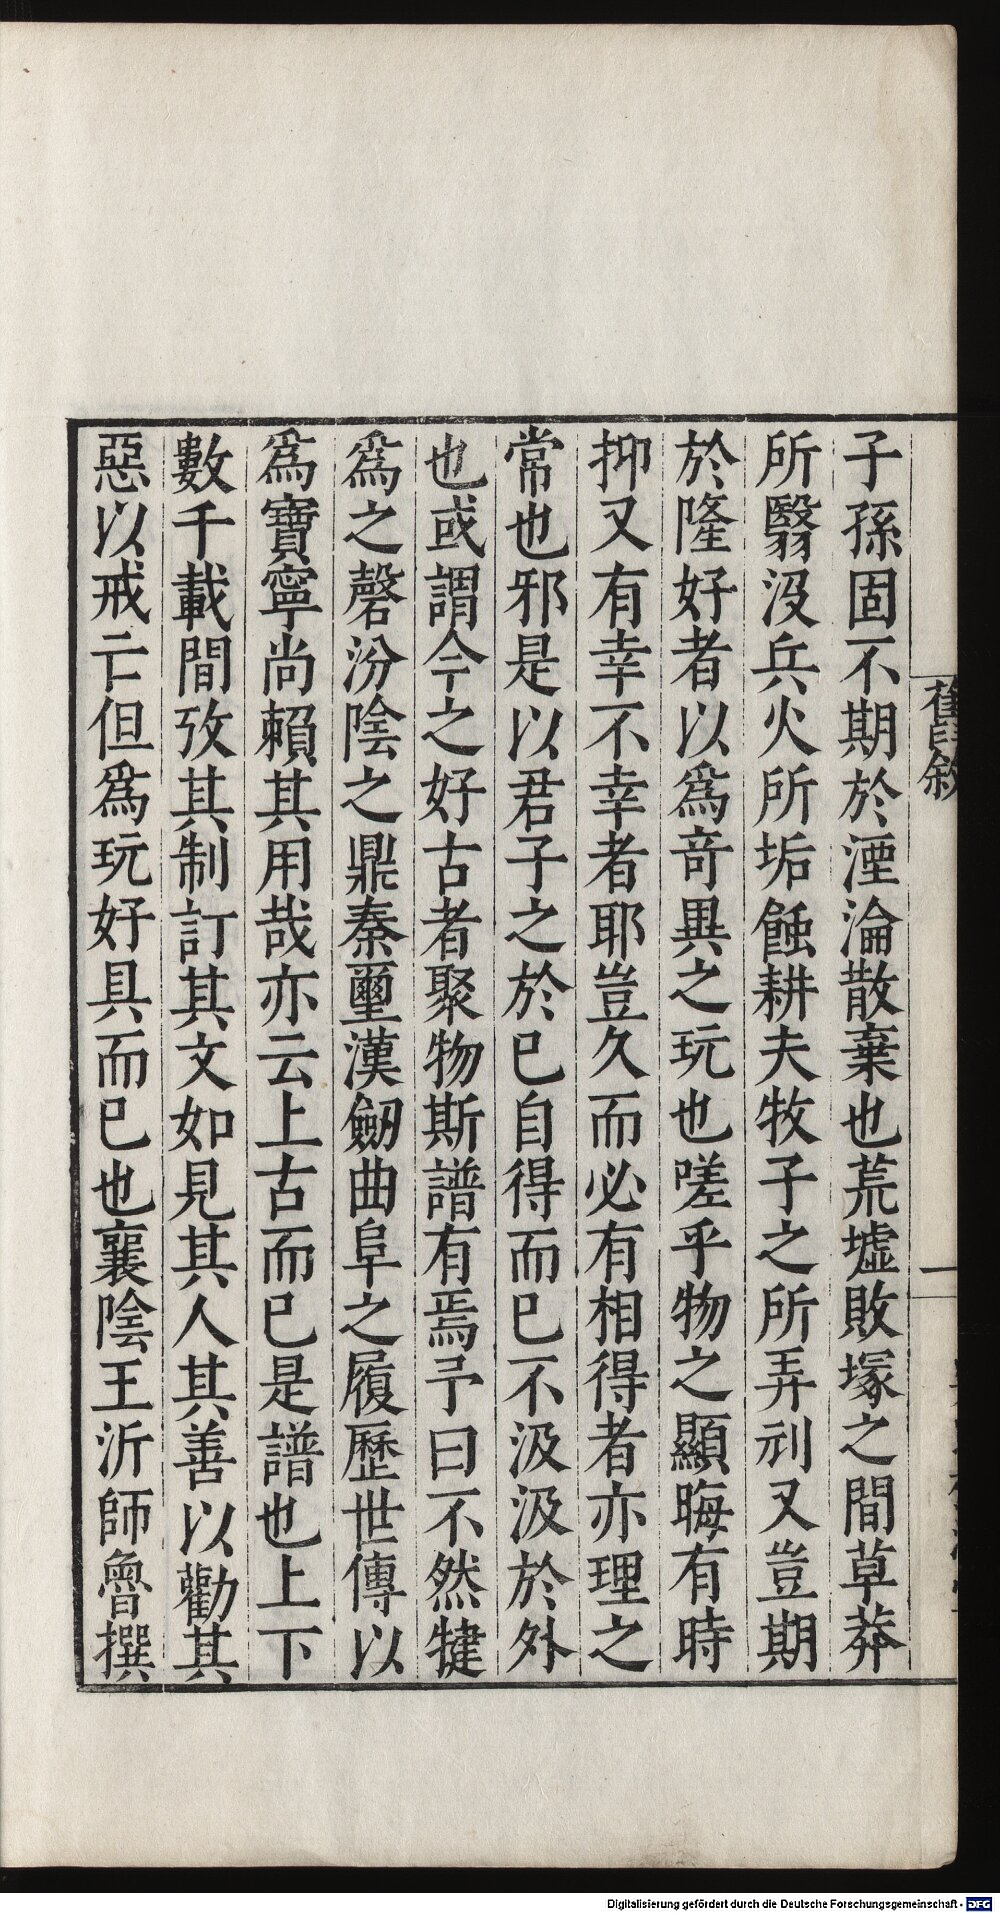 子孫固不期於湮淪散棄也荒墟敗塚之間草莽
所翳沒兵火所垢蝕耕夫牧子之所弄刓又豈期
於隆好者以爲竒異之玩也嗟乎物之顯晦有時
抑又有幸不幸者耶豈久而必有相得者亦理之
常也邪是以君子之於已自得而已不汲汲於外
也或謂今之好古者聚物斯譜有焉予曰不然犍
爲之磬汾陰之鼎秦璽漢劒曲阜之履歷世傳以
爲寶寧尚賴其用哉亦云上古而已是譜也上下
數千載間攷其制訂其文如見其人其善以勸其
惡以戒亡但爲玩好具而已也襄陰王沂師魯撰
舊序敘
一
Digitalisierung gefördert durch die Deutsche Forschungsgemeinschaft - DFG